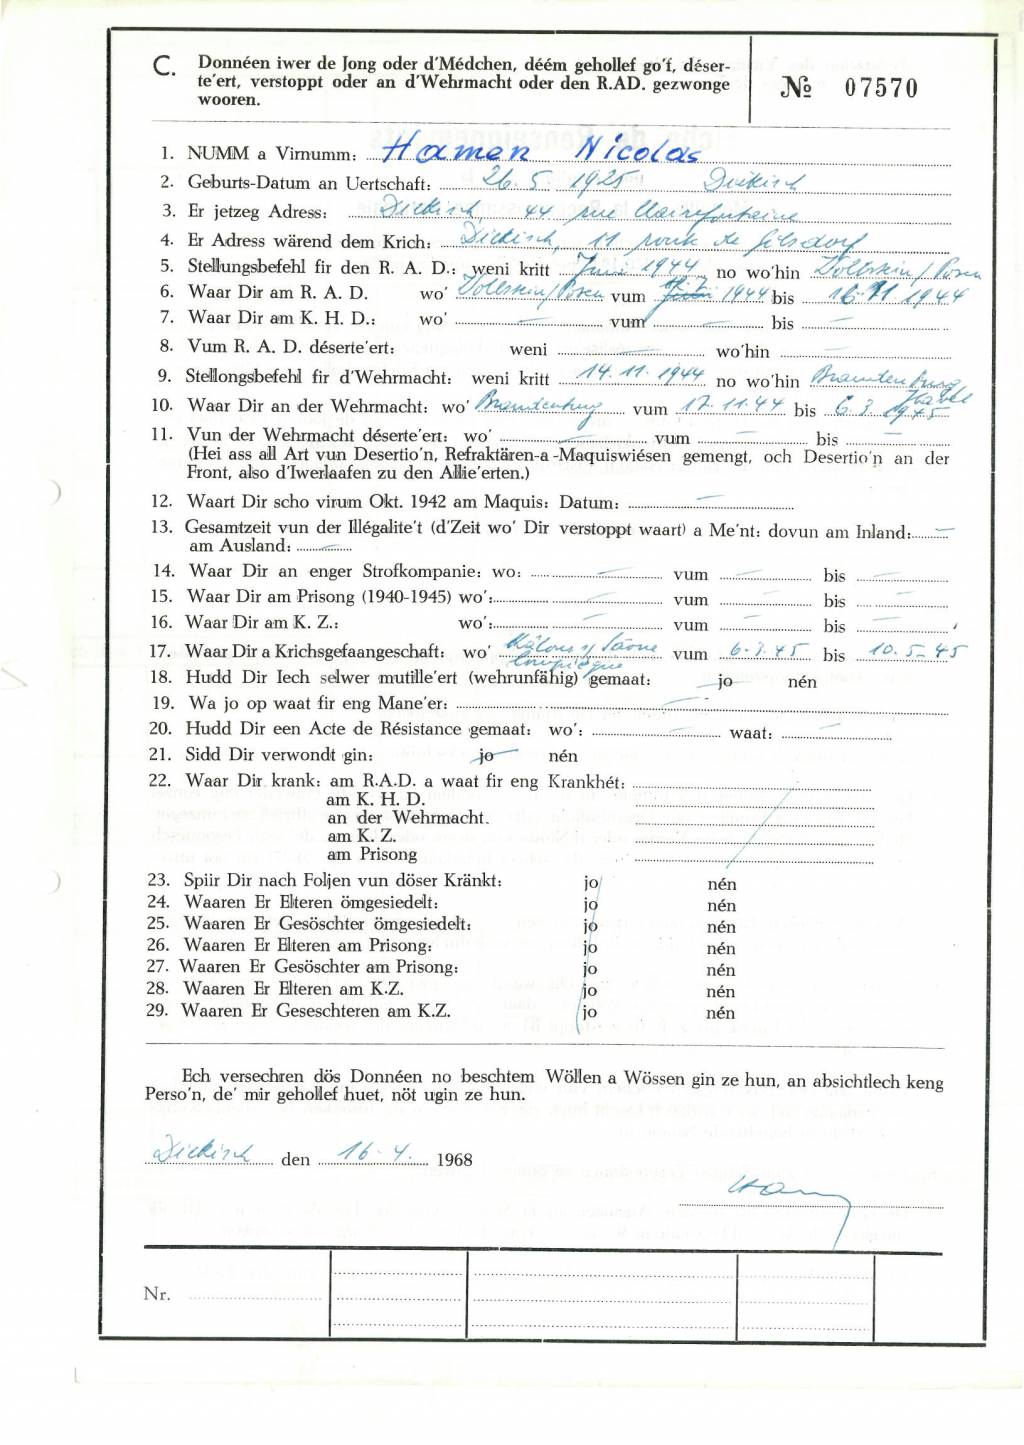 C. Donnéen iwer de Jong oder d'Médchen, déém gehollef go'f, déser-
te'ert, verstoppt oder an d'Wehrmacht oder den R.AD. gezwonge
wooren.
№ 07570
1. NUMM a Virnumm: Hamen Nicolas
2. Geburts-Datum an Uertschaft: 26.5.1925 Diekirch
3. Er jetzeg Adress: Diekirch, 44 rue Clairefontaine
4. Er Adress wärend dem Krich: Diekirch, 11 route de Gilsdorf
5. Stellungsbefehl fir den R. A. D.: weni kritt Juni 1944 no wo'hin Wollstein/Posen
6. Waar Dir am R. A. D. wo' Wollstein/Posen vum 1944 bis 16.11 1944
7. Waar Dir am K. H. D.: wo' — vum — bis —
8. Vum R. A. D. déserte'ert: weni — wo'hin —
9. Stellongsbefehl fir d'Wehrmacht: weni kritt 14.11.1944 no wo'hin Brandenburg Havel
10. Waar Dir an der Wehrmacht: wo' Brandenburg vum 17.11.44 bis 6.3.1945
11. Vun der Wehrmacht déserte'ert: wo' — vum — bis —
(Hei ass all Art vun Desertio'n, Refraktären-a-Maquiswiésen gemengt, och Desertio'n an der
Front, also d'Iwerlaafen zu den Allie'erten.)
12. Waart Dir scho virum Okt. 1942 am Maquis: Datum: —
13. Gesamtzeit vun der Illégalite't (d'Zeit wo' Dir verstoppt waart) a Me'nt: dovun am Inland: —
am Ausland: —
14. Waar Dir an enger Strofkompanie: wo: — vum — bis —
15. Waar Dir am Prisong (1940-1945) wo': — vum — bis —
16. Waar Dir am K. Z.: wo': — vum — bis —
17. Waar Dir a Krichsgefaangeschaft: wo' Châlons s/Saône Compiègne vum 6.3.45 bis 10.5.45
18. Hudd Dir Iech selwer mutille'ert (wehrunfähig) gemaat: jo nén
19. Wa jo op waat fir eng Mane'er: —
20. Hudd Dir een Acte de Résistance gemaat: wo': — waat: —
21. Sidd Dir verwondt gin: jo nén
22. Waar Dir krank: am R.A.D. a waat fir eng Krankhét:
am K. H. D.
an der Wehrmacht.
am K. Z.
am Prisong
23. Spiir Dir nach Foljen vun döser Kränkt: jo nén
24. Waaren Er Elteren ömgesiedelt: jo nén
25. Waaren Er Gesöschter ömgesiedelt: jo nén
26. Waaren Er Elteren am Prisong: jo nén
27. Waaren Er Gesöschter am Prisong: jo nén
28. Waaren Er Elteren am K.Z. jo nén
29. Waaren Er Geseschteren am K.Z. jo nén
Ech versechren dös Donnéen no beschtem Wöllen a Wössen gin ze hun, an absichtlech keng
Perso'n, de' mir gehollef huet, nöt ugin ze hun.
Diekirch den 16.4. 1968
Nr.